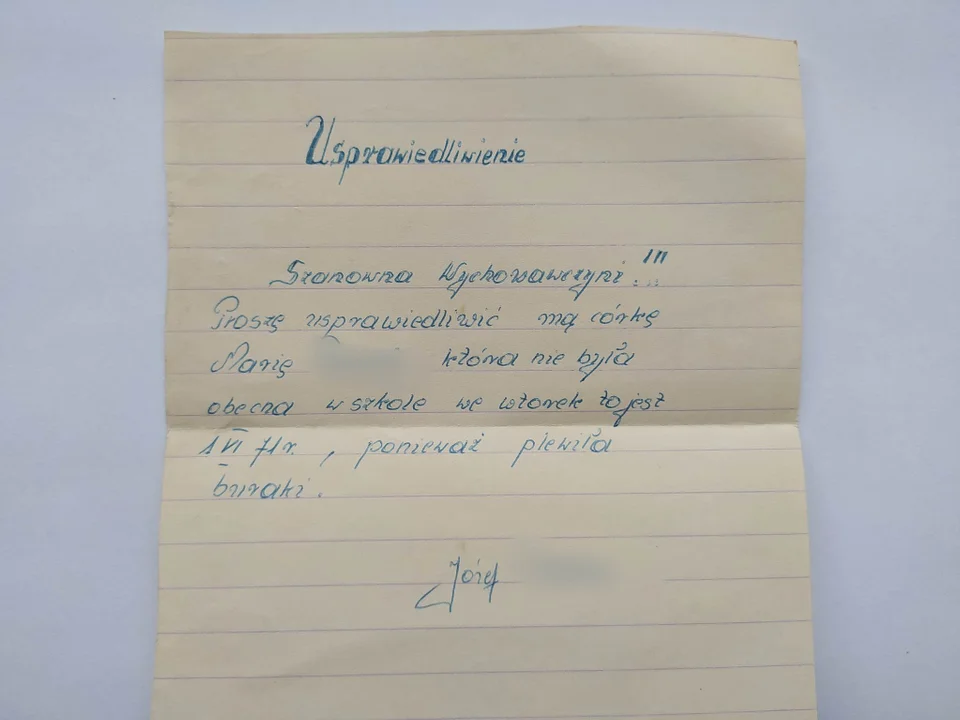 Usprawiedliwienie
Szanowna Wychowawczyni!!!
Proszę usprawiedliwić mą córkę
Marię która nie była
obecna w szkole we wtorek to jest
1 VI 71r., ponieważ plewiła
buraki.
Józef